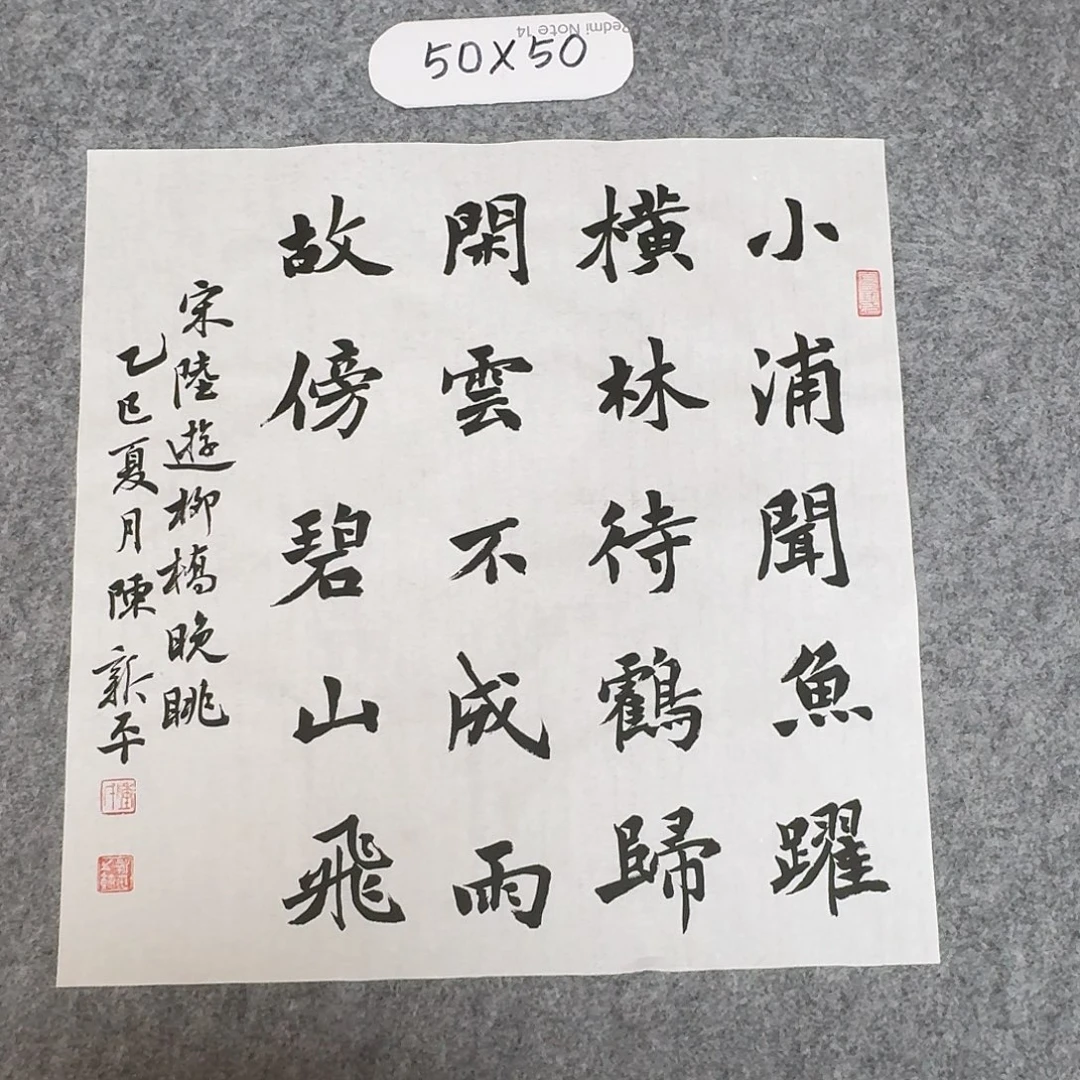 Redmi Note 14
50X50
小浦聞魚躍
橫林待鶴歸
閑雲不成雨
故傍碧山飛
宋陸遊柳橋晚眺
乙巳夏月陳新平